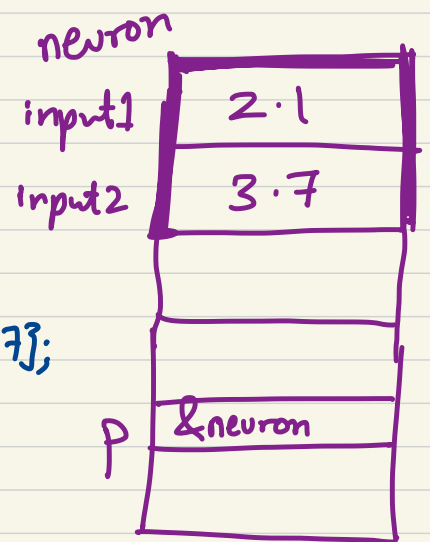 neuron
input1 2.1
input2 3.7
7};
p &neuron